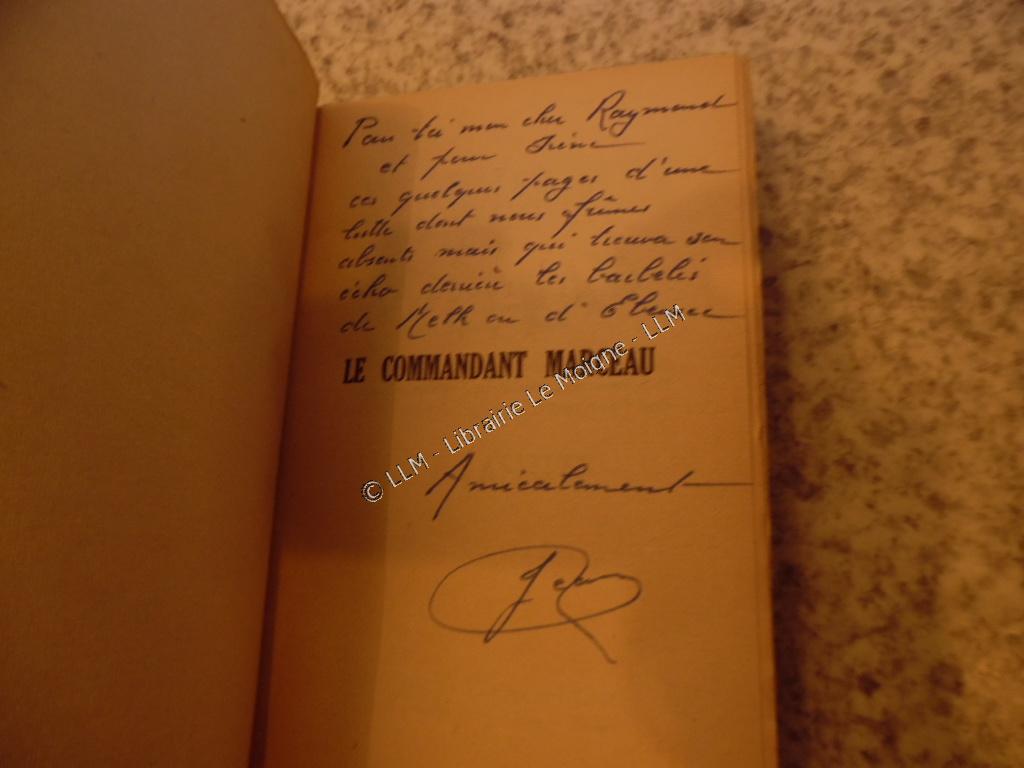 Pour toi mon cher Raymond
et pour Irène
ces quelques pages d'une
lutte dont nous fûmes
absents mais qui trouva son
écho derrière les barbelés
de Melk ou d'Ebensee
LE COMMANDANT MARCEAU
© LLM - Librairie Le Moigne - LLM
Amicalement
Jean